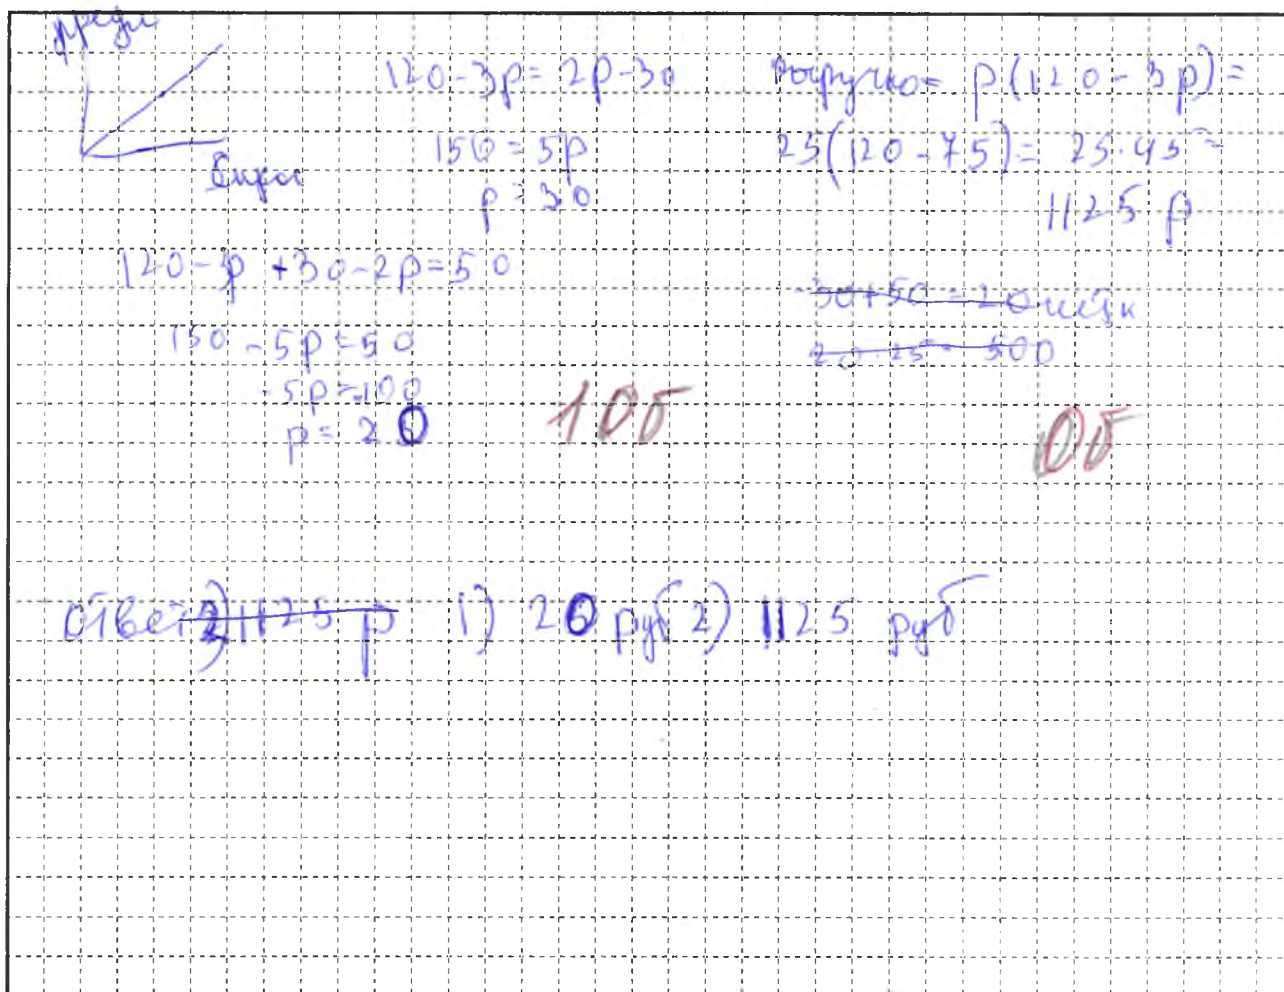 предл
Спрос
120-3p = 2p-30
150 = 5p
p = 30
120-3p+30-2p=50
150-5p=50
-5p=100
p = 20
10б
Выручка = p(120-3p)=
25(120-75)= 25·45=
1125 р
-30+50=20
20·25= 50р
0б
ответ 2) 1125 р 1) 20 руб 2) 1125 руб